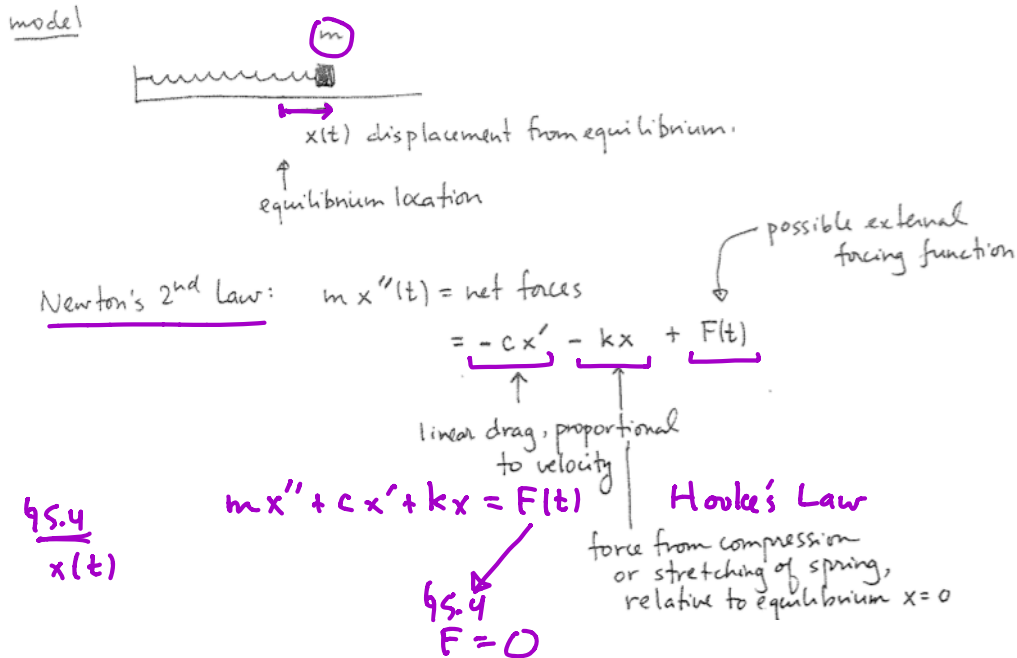 model
m
x(t) displacement from equilibrium.
equilibrium location
possible external
forcing function
Newton's 2nd Law: m x''(t) = net forces
= - c x' - kx + F(t)
linear drag, proportional
to velocity
m x'' + c x' + kx = F(t) Hooke's Law
§5.4
x(t)
force from compression
or stretching of spring,
relative to equilibrium x=0
§5.4
F = 0